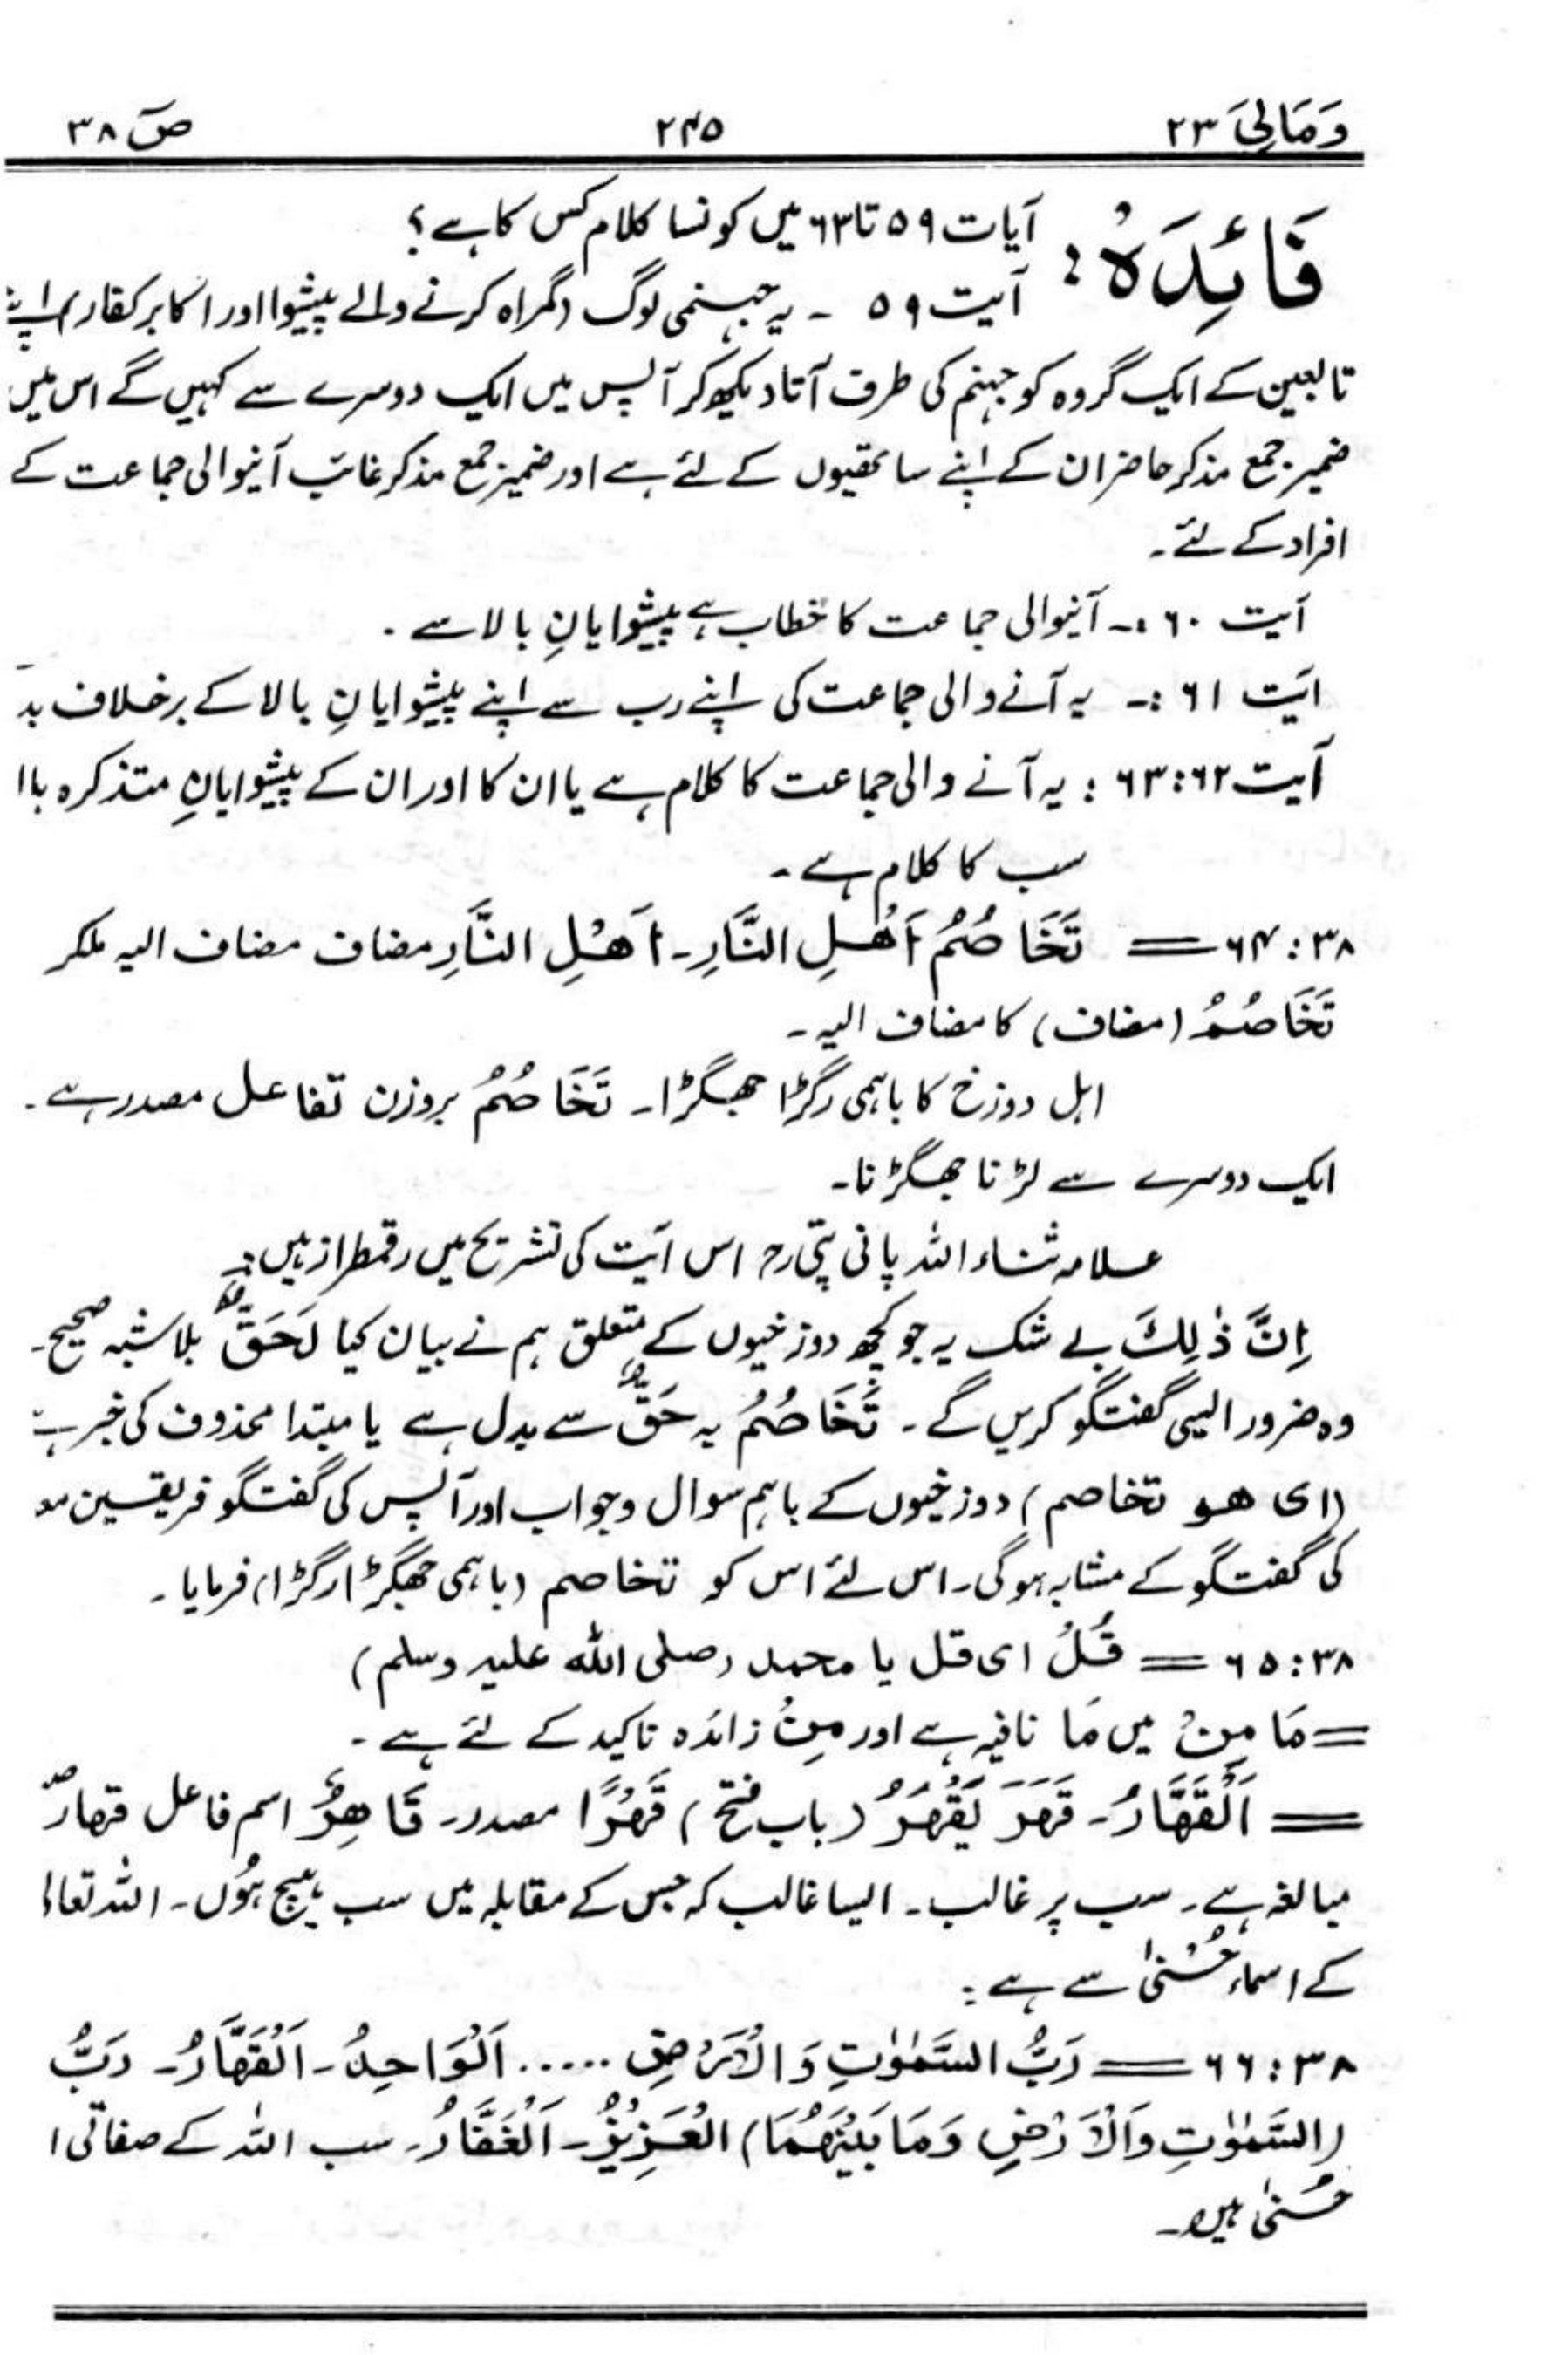 وَمَالِیَ ۲۳ ۲۴۵ صٓ ۳۸
فَائِدَہُ: آیات ۵۹ تا ۶۳ میں کونسا کلام کس کا ہے؟
آیت ۵۹ ۔ یہ جہنمی لوگ (گمراہ کرنے والے پیشوا اور اکابر کفار) اپنے
تابعین کے ایک گروہ کو جہنم کی طرف آتا دیکھ کر آپس میں ایک دوسرے سے کہیں گے اس میں
ضمیر جمع مذکر حاضر ان کے اپنے ساتھیوں کے لئے ہے اور ضمیر جمع مذکر غائب آنیوالی جماعت کے
افراد کے لئے۔
آیت ۶۰ :۔ آنیوالی جماعت کا خطاب ہے پیشوایانِ بالا سے ۔
آیت ۶۱ :۔ یہ آنے والی جماعت کی اپنے رب سے اپنے پیشوایانِ بالا کے برخلاف بد
آیت ۶۲: ۶۳ : یہ آنے والی جماعت کا کلام ہے یا ان کا اور ان کے پیشوایانِ متذکرہ باا
سب کا کلام ہے۔
۳۸: ۶۴ = تَخَاصُمُ اَھْلِ النَّارِ۔ اَھْلِ النَّارِ مضاف مضاف الیہ ملکر
تَخَاصُمُ (مضاف) کا مضاف الیہ۔
اہل دوزخ کا باہمی رگڑا جھگڑا۔ تَخَاصُمُ بروزن تفاعل مصدر ہے۔
ایک دوسرے سے لڑنا جھگڑنا۔
علامہ ثناء اللہ پانی پتی رح اس آیت کی تشریح میں رقمطراز ہیں:۔
اِنَّ ذٰلِکَ بے شک یہ جو کچھ دوزخیوں کے متعلق ہم نے بیان کیا لَحَقٌّ بلا شبہ صحیح۔
وہ ضرور ایسی گفتگو کریں گے۔ تَخَاصُمُ یہ حَقٌّ سے بدل ہے یا مبتدا محذوف کی خبر ہے
(ای ھو تخاصم) دوزخیوں کے باہم سوال وجواب اور آپس کی گفتگو فریقین
کی گفتگو کے مشابہ ہوگی۔ اس لئے اس کو تخاصم (باہمی جھگڑا رگڑا) فرمایا۔
۳۸: ۶۵ = قُلْ ای قل یا محمد (صلی اللہ علیہ وسلم)
= مَا مِنْ میں مَا نافیہ ہے اور مِنْ زائدہ تاکید کے لئے ہے۔
= اَلْقَھَّارُ۔ قَھَرَ یَقْھَرُ (باب فتح) قَھْرًا مصدر۔ قَاھِرٌ اسم فاعل قھارٌ
مبالغہ ہے۔ سب پر غالب۔ ایسا غالب کہ جس کے مقابلہ میں سب ہیچ ہوں۔ اللہ تعالٰی
کے اسماء حُسْنٰی سے ہے:
۳۸: ۶۶ = رَبُّ السَّمٰوٰتِ وَالْاَرْضِ ..... اَلْوَاحِدُ۔ اَلْقَھَّارُ۔ رَبُّ
(السَّمٰوٰتِ وَالْاَرْضِ وَمَا بَیْنَھُمَا) الْعَزِیْزُ۔ اَلْغَفَّارُ۔ سب اللہ کے صفاتی ا
حُسنٰی ہیں۔